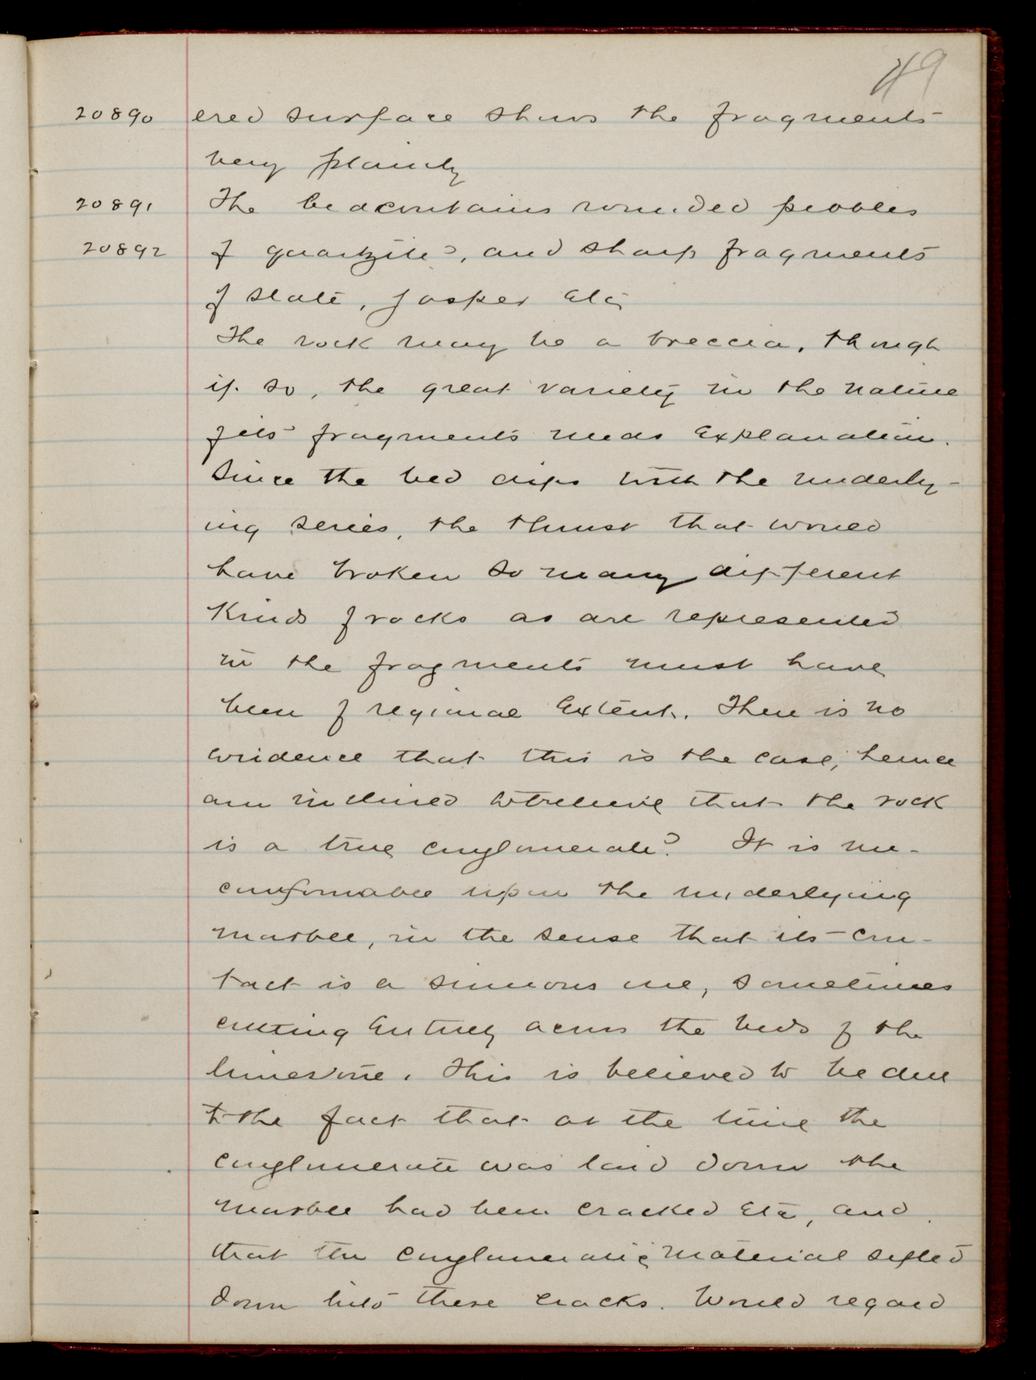 49
20890 ered surface shows the fragments
very plainly
20891 The bed contains rounded pebbles
20892 of quartzite, and sharp fragments
of slate, jasper etc
The rock may be a breccia, though
if so, the great variety in the nature
of its fragments needs explanation.
Since the bed dips with the underly-
ing series, the thrust that would
have broken so many different
kinds of rocks as are represented
in the fragments must have
been of regional extent. There is no
evidence that this is the case, hence
am inclined to believe that the rock
is a true conglomerate? It is un-
conformable upon the underlying
marble, in the sense that its con-
tact is a sinuous one, sometimes
cutting entirely across the beds of the
limestone. This is believed to be due
to the fact that at the time the
conglomerate was laid down the
marble had been cracked etc, and
that the conglomeratic material sifted
down into these cracks. Would regard